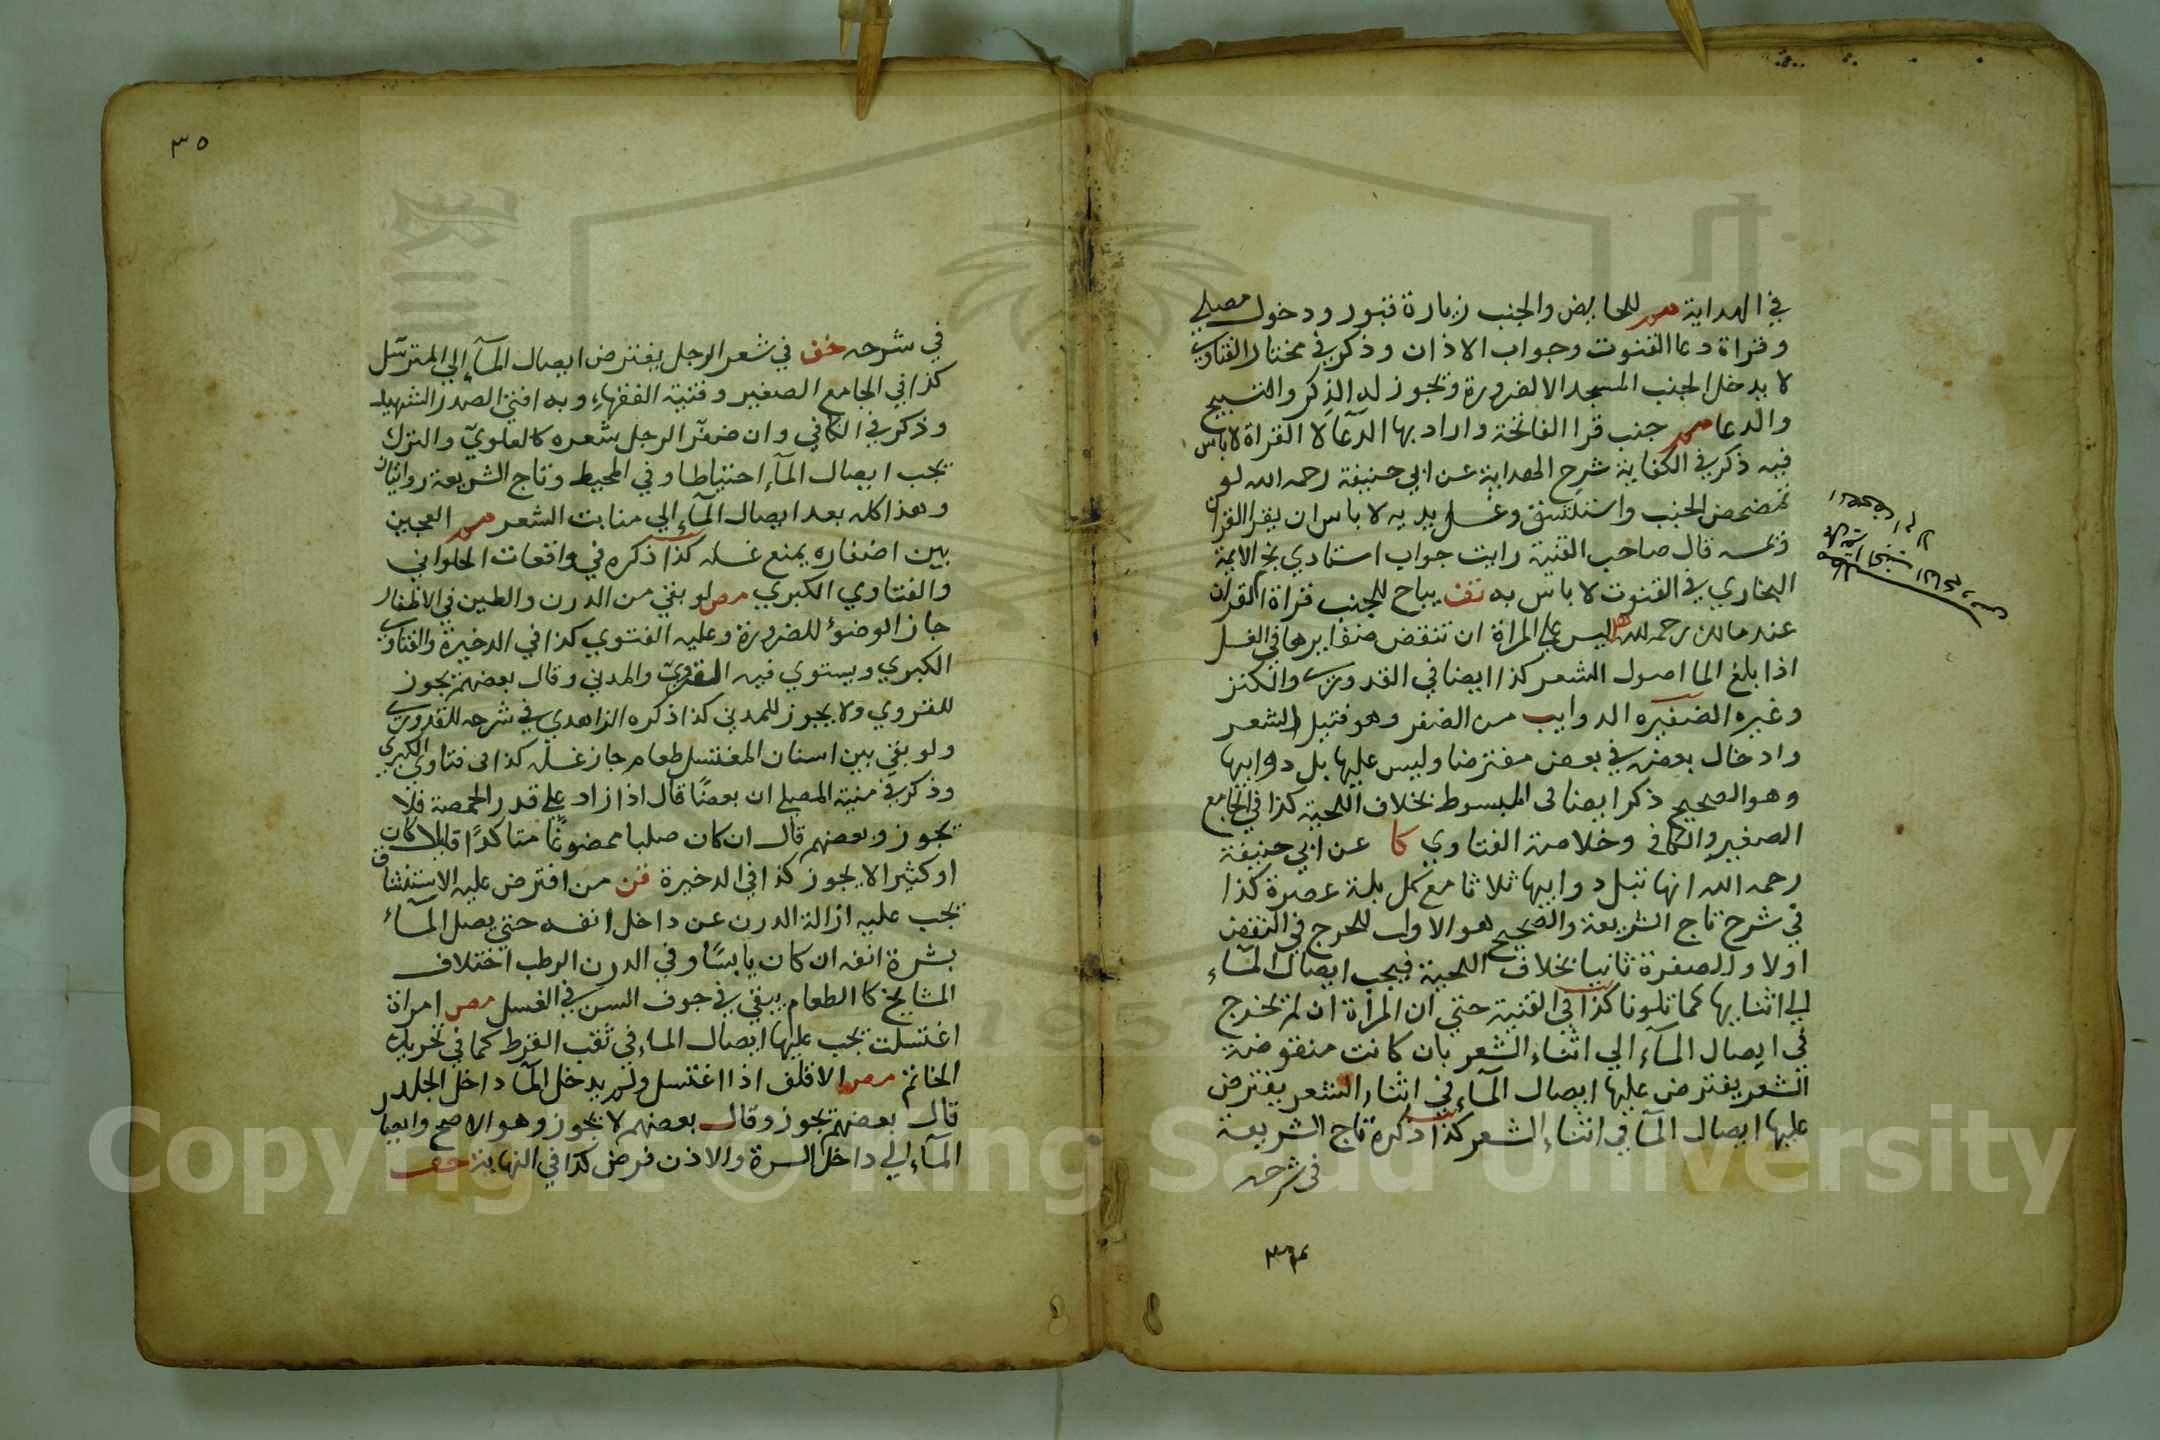 في الهداية للحايض والجنب زيارة قبور ودخول مصلي
وقراة دعا القنوت وجواب الاذان وذكر في مختار الفتاوي
لا يدخل الجنب المسجد الا لضرورة ويجوز له الذكر والتسبيح
والدعا جنب قرا الفاتحة واراد بها الدعآ لا القراة لا باس
فيه ذكر في الكفاية شرح الهداية عن ابي حنيفة رحمه الله لو
تمضمض الجنب واستنشق وغسل يديه لا باس ان يقرا القران
وبمسه قال صاحب القنية رايت جواب استادي نجم الايمة
البخاري في القنوت لا باس به تف يباح للجنب قراة القران
عند مالك رحمه الله ليس علي المراة ان تنقض ضفايرها في الغسل
اذا بلغ الما اصول الشعر كذا ايضا في القدوري والكنز
وغيره الضفيره الدوايب من الضفر وهو فتيل الشعر
وادخال بعضه في بعض مفترضا وليس عليها بل دوايبها
وهو الصحيح ذكر ايضا في المبسوط بخلاف اللحية كذا في الجامع
الصغير والكافي وخلاصة الفتاوي كا عن ابي حنيفة
رحمه الله انها تبل دوايبها ثلاثا مع كل بلة عصرة كذا
في شرح تاج الشريعة والصحيح هو الاول للحرج في النقض
اولا والضفرة ثانيا بخلاف اللحية فيجب ايصال المآء
الي اثنايها كما تلونا كذا في القنية حتي ان المراة ان لم تخرج
في ايصال المآء الي اثناء الشعر بان كانت منقوضة
الشعر يفترض عليها ايصال المآء في اثناء الشعر يفترض
عليها ايصال المآ في اثناء الشعر كذا ذكره تاج الشريعة
في شرحه
٣٥
في شرحه خف في شعر الرجل يفترض ايصال المآء الي المترسل
كذا في الجامع الصغير وقنية الفقهاء وبه افتي الصدر الشهيد
وذكر في الكافي وان ضفر الرجل شعره كالعلوي والترك
يجب ايصال المآء احتياطا وفي المحيط وتاج الشريعة روايتان
وهذا كله بعد ايصال المآء الي منابت الشعر العجين
بين اضفاره يمنع غسله كذا ذكره في واقعات الحلواني
والفتاوي الكبري مص لو بقي من الدرن والطين في الاظفار
جاز الوضوء للضرورة وعليه الفتوي كذا في الدخيرة والفتاوي
الكبري ويستوي فيه القروي والمدني وقال بعضهم يجوز
للقروي ولا يجوز للمدني كذا ذكره الزاهدي في شرحه للقدوري
ولو بقي بين اسنان المغتسل طعام جاز غسله كذا في فتاوي الكبري
وذكر في منية المصلي ان بعضا قال اذا زاد علي قدر الحمصة فلا
يجوز وبعضهم قال ان كان صلبا ممضوغا متاكدا قليلا كان
او كثيرا لا يجوز كذا في الدخيرة فن من افترض عليه الاستنشاق
يجب عليه ازالة الدرن عن داخل انفه حتي يصل المآء
بشرة انفه ان كان يابسا وفي الدرن الرطب اختلاف
المشايخ كا الطعام يبقي في جوف السن في الغسل مص امراة
اغتسلت يجب عليها ايصال الماء في ثقب القرط كما في تحريك
الخاتم مص الاقلف اذا اغتسل ولم يدخل المآ داخل الجلد
قال بعضهم يجوز وقال بعضهم لا يجوز وهو الاصح وايصا
المآء الي داخل السرة والاذن فرض كذا في النهاية خف
Copyright © King Saud University